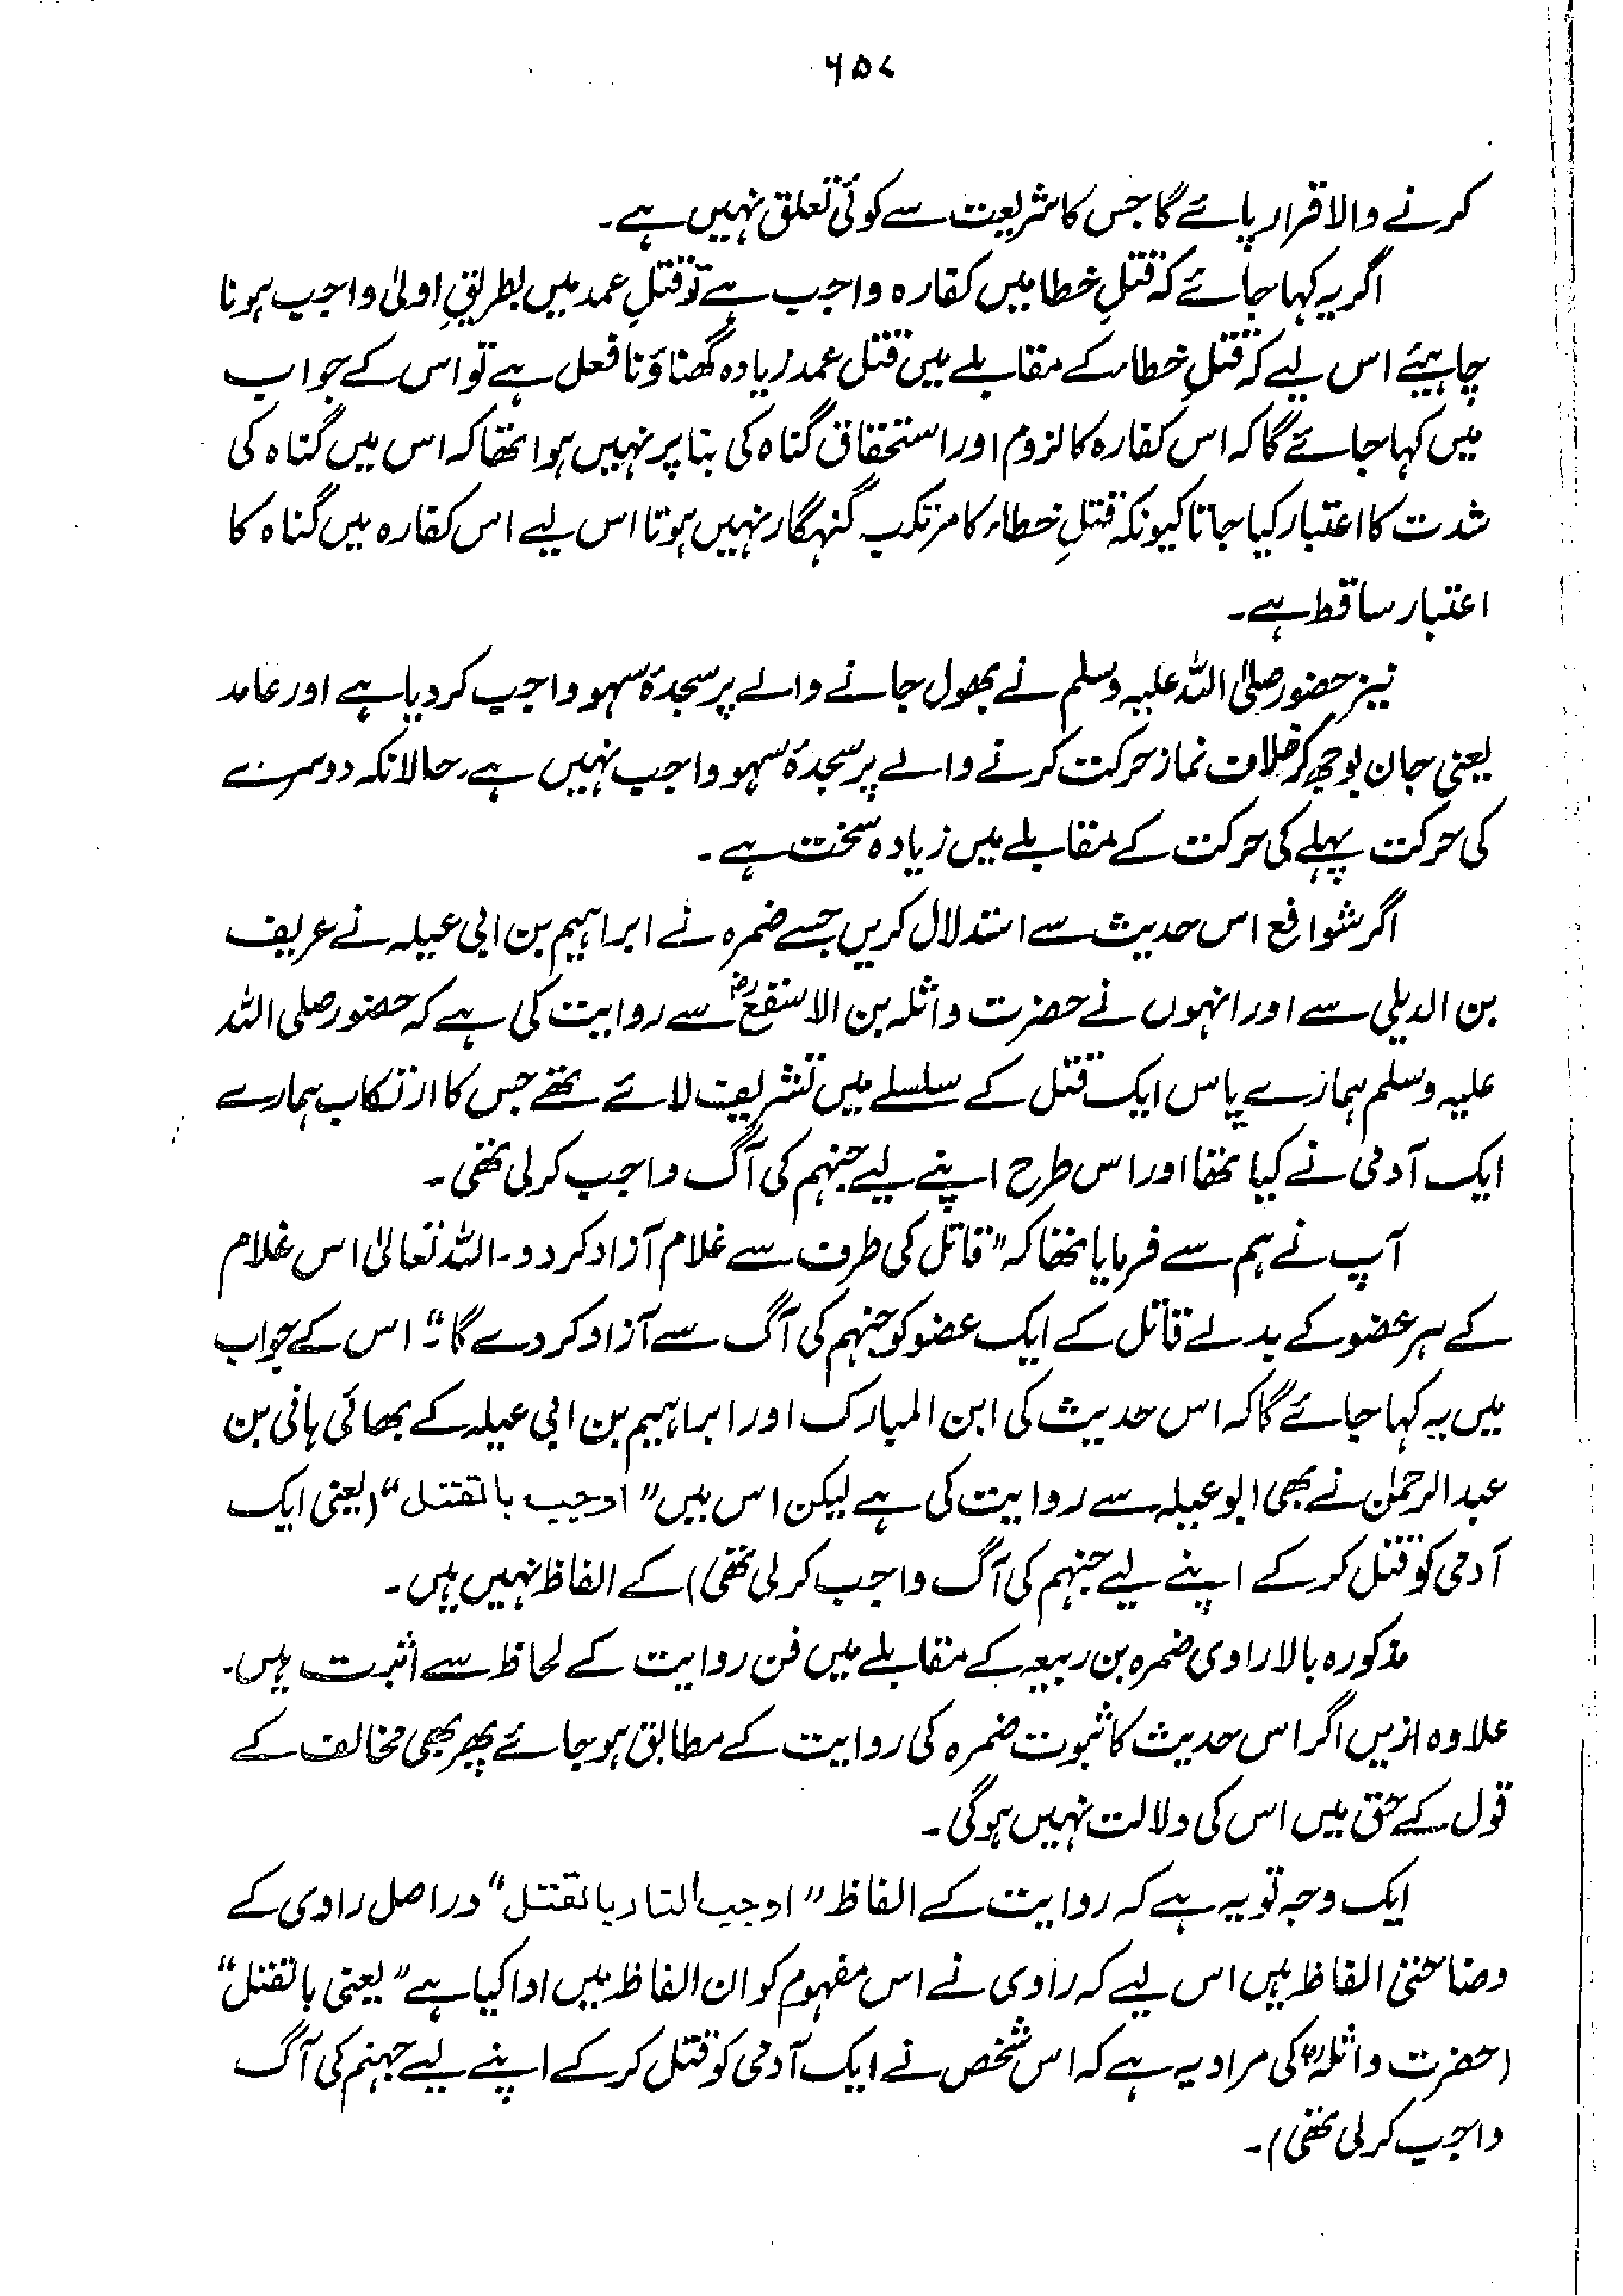 ۶۵۷
کرنے والا قرار پائے گا جس کا شریعت سے کوئی تعلق نہیں ہے۔
اگر یہ کہا جائے کہ قتلِ خطا میں کفارہ واجب ہے تو قتلِ عمد میں بطریقِ اولیٰ واجب ہونا
چاہیئے اس لیے کہ قتلِ خطاء کے مقابلے میں قتل عمد زیادہ گھناؤنا فعل ہے تو اس کے جواب
میں کہا جائے گا کہ اس کفارہ کا لزوم اور استحقاق گناہ کی بنا پر نہیں ہوا تھا کہ اس میں گناہ کی
شدت کا اعتبار کیا جاتا کیونکہ قتلِ خطاء کا مرتکب گنہگار نہیں ہوتا اس لیے اس کفارہ میں گناہ کا
اعتبار ساقط ہے۔
نیز حضور صلی اللہ علیہ وسلم نے بھول جانے والے پر سجدۂ سہو واجب کر دیا ہے اور عامد
یعنی جان بوجھ کر خلاف نماز حرکت کرنے والے پر سجدۂ سہو واجب نہیں ہے۔ حالانکہ دوسرے
کی حرکت پہلے کی حرکت کے مقابلے میں زیادہ سخت ہے۔
اگر شوافع اس حدیث سے استدلال کریں جسے ضمرہ نے ابراہیم بن ابی عیلہ نے عریف
بن الدیلی سے اور انہوں نے حضرت واثلہ بن الاسقع رضؓ سے روایت کی ہے کہ حضور صلی اللہ
علیہ وسلم ہمارے پاس ایک قتل کے سلسلے میں تشریف لائے تھے جس کا ارتکاب ہمارے
ایک آدمی نے کیا تھا اور اس طرح اپنے لیے جہنم کی آگ واجب کر لی تھی۔
آپ نے ہم سے فرمایا تھا کہ "قاتل کی طرف سے غلام آزاد کر دو۔ اللہ تعالیٰ اس غلام
کے ہر عضو کے بدلے قاتل کے ایک عضو کو جہنم کی آگ سے آزاد کر دے گا"۔ اس کے جواب
میں یہ کہا جائے گا کہ اس حدیث کی ابن المبارک اور ابراہیم بن ابی عیلہ کے بھائی ہانی بن
عبدالرحمٰن نے بھی ابو عیلہ سے روایت کی ہے لیکن اس میں "اوجب بالقتل" (یعنی ایک
آدمی کو قتل کر کے اپنے لیے جہنم کی آگ واجب کر لی تھی) کے الفاظ نہیں ہیں۔
مذکورہ بالا راوی ضمرہ بن ربیعہ کے مقابلے میں فن روایت کے لحاظ سے اثبت ہیں۔
علاوہ ازیں اگر اس حدیث کا ثبوت ضمرہ کی روایت کے مطابق ہو جائے پھر بھی مخالف کے
قول کے حق میں اس کی دلالت نہیں ہوگی۔
ایک وجہ تو یہ ہے کہ روایت کے الفاظ "اوجب النار بالقتل" دراصل راوی کے
وضاحتی الفاظ ہیں اس لیے کہ راوی نے اس مفہوم کو ان الفاظ میں ادا کیا ہے "یعنی بالقتل"
(حضرت واثلہؓ کی مراد یہ ہے کہ اس شخص نے ایک آدمی کو قتل کر کے اپنے لیے جہنم کی آگ
واجب کر لی تھی)۔